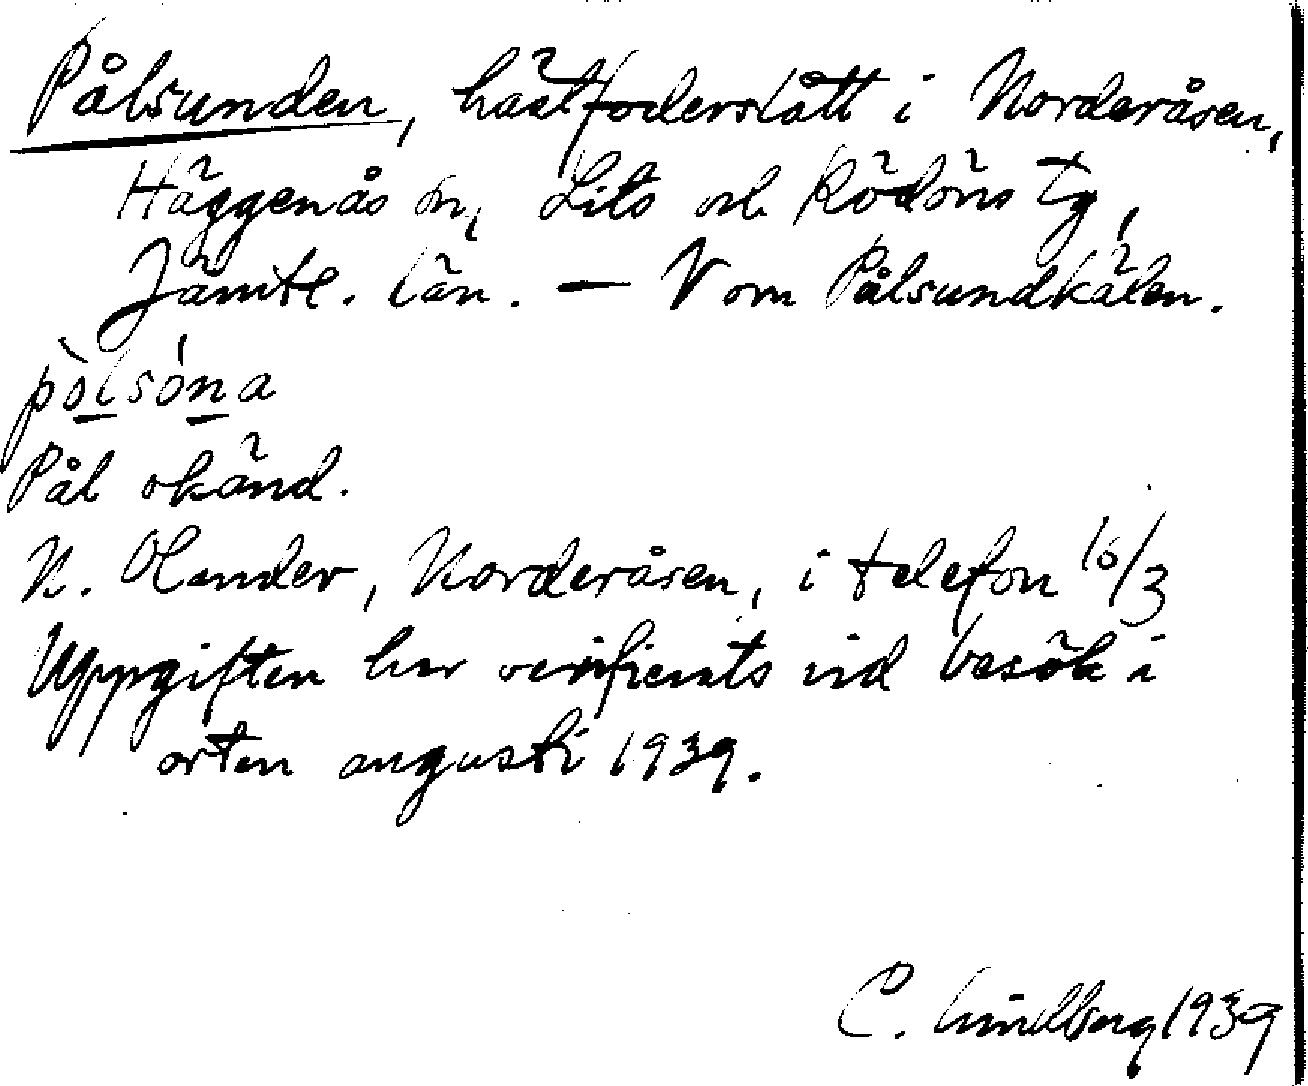 Pålsunden, hästfoderslått i Norderåsen,
Häggenås sn, Lits och Rödöns tg,
Jämtl. län. — V om Pålsundkälen.
pòlsóna
Pål okänd.
N. Olander, Norderåsen, i telefon 16/3
Uppgiften har verifierats vid besök i
orten augusti 1939.
C. Lindberg 1939